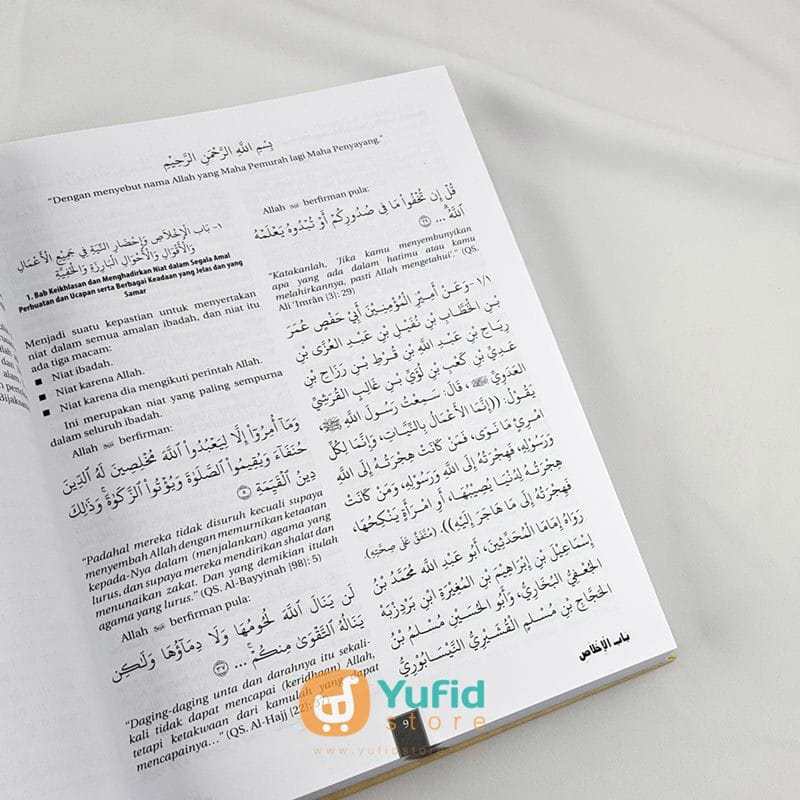 بِسْمِ اللَّهِ الرَّحْمَنِ الرَّحِيْمِ
"Dengan menyebut nama Allah yang Maha Pemurah lagi Maha Penyayang."
١- بَابُ الْإِخْلَاصِ وَإِحْضَارِ النِّيَّةِ فِي جَمِيْعِ الْأَعْمَالِ
وَالْأَقْوَالِ وَالْأَحْوَالِ الْبَارِزَةِ وَالْخَفِيَّةِ
1. Bab Keikhlasan dan Menghadirkan Niat dalam Segala Amal
Perbuatan dan Ucapan serta Berbagai Keadaan yang Jelas dan yang
Samar
Menjadi suatu kepastian untuk menyertakan
niat dalam semua amalan ibadah, dan niat itu
ada tiga macam:
■ Niat ibadah.
■ Niat karena Allah.
■ Niat karena dia mengikuti perintah Allah.
Ini merupakan niat yang paling sempurna
dalam seluruh ibadah.
Allah ﷻ berfirman:
وَمَآ أُمِرُوٓا۟ إِلَّا لِيَعْبُدُوا۟ ٱللَّهَ مُخْلِصِينَ لَهُ ٱلدِّينَ
حُنَفَآءَ وَيُقِيمُوا۟ ٱلصَّلَوٰةَ وَيُؤْتُوا۟ ٱلزَّكَوٰةَ ۚ وَذَٰلِكَ
دِينُ ٱلْقَيِّمَةِ ٥
"Padahal mereka tidak disuruh kecuali supaya
menyembah Allah dengan memurnikan ketaatan
kepada-Nya dalam (menjalankan) agama yang
lurus, dan supaya mereka mendirikan shalat dan
menunaikan zakat. Dan yang demikian itulah
agama yang lurus." (QS. Al-Bayyinah [98]: 5)
Allah ﷻ berfirman pula:
لَن يَنَالَ ٱللَّهَ لُحُومُهَا وَلَا دِمَآؤُهَا وَلَٰكِن
يَنَالُهُ ٱلتَّقْوَىٰ مِنكُمْ ۚ ... ٣٧
"Daging-daging unta dan darahnya itu sekali-
kali tidak dapat mencapai (keridhaan) Allah,
tetapi ketakwaan dari kamulah yang dapat
mencapainya..." (QS. Al-Hajj [22]: 37)
Allah ﷻ berfirman pula:
قُلْ إِن تُخْفُوا۟ مَا فِى صُدُورِكُمْ أَوْ تُبْدُوهُ يَعْلَمْهُ
ٱللَّهُ ۗ ... ٢٩
"Katakanlah, 'Jika kamu menyembunyikan
apa yang ada dalam hatimu atau kamu
melahirkannya, pasti Allah mengetahui'." (QS.
Ali 'Imrân [3]: 29)
١/١- وَعَنْ أَمِيْرِ الْمُؤْمِنِيْنَ أَبِيْ حَفْصٍ عُمَرَ
بْنِ الْخَطَّابِ بْنِ نُفَيْلِ بْنِ عَبْدِ الْعُزَّى بْنِ
رِيَاحِ بْنِ عَبْدِ اللَّهِ بْنِ قُرْطِ بْنِ رَزَاحِ بْنِ
عَدِيِّ بْنِ كَعْبِ بْنِ لُؤَيِّ بْنِ غَالِبٍ الْقُرَشِيِّ
الْعَدَوِيِّ ﵁، قَالَ: سَمِعْتُ رَسُوْلَ اللَّهِ ﷺ،
يَقُوْلُ: ((إِنَّمَا الْأَعْمَالُ بِالنِّيَّاتِ، وَإِنَّمَا لِكُلِّ
امْرِئٍ مَا نَوَى، فَمَنْ كَانَتْ هِجْرَتُهُ إِلَى اللَّهِ
وَرَسُوْلِهِ، فَهِجْرَتُهُ إِلَى اللَّهِ وَرَسُوْلِهِ، وَمَنْ كَانَتْ
هِجْرَتُهُ لِدُنْيَا يُصِيْبُهَا، أَوِ امْرَأَةٍ يَنْكِحُهَا،
فَهِجْرَتُهُ إِلَى مَا هَاجَرَ إِلَيْهِ)). (مُتَّفَقٌ عَلَى صِحَّتِهِ)
رَوَاهُ إِمَامَا الْمُحَدِّثِيْنَ، أَبُو عَبْدِ اللَّهِ مُحَمَّدُ بْنُ
إِسْمَاعِيْلَ بْنِ إِبْرَاهِيْمَ بْنِ الْمُغِيْرَةِ ابْنِ بَرْدِزْبَهْ
الْجُعْفِيُّ الْبُخَارِيُّ، وَأَبُو الْحُسَيْنِ مُسْلِمُ بْنُ
الْحَجَّاجِ بْنِ مُسْلِمٍ الْقُشَيْرِيُّ النَّيْسَابُوْرِيُّ
باب الإخلاص
Yufid
store
www.yufidstore